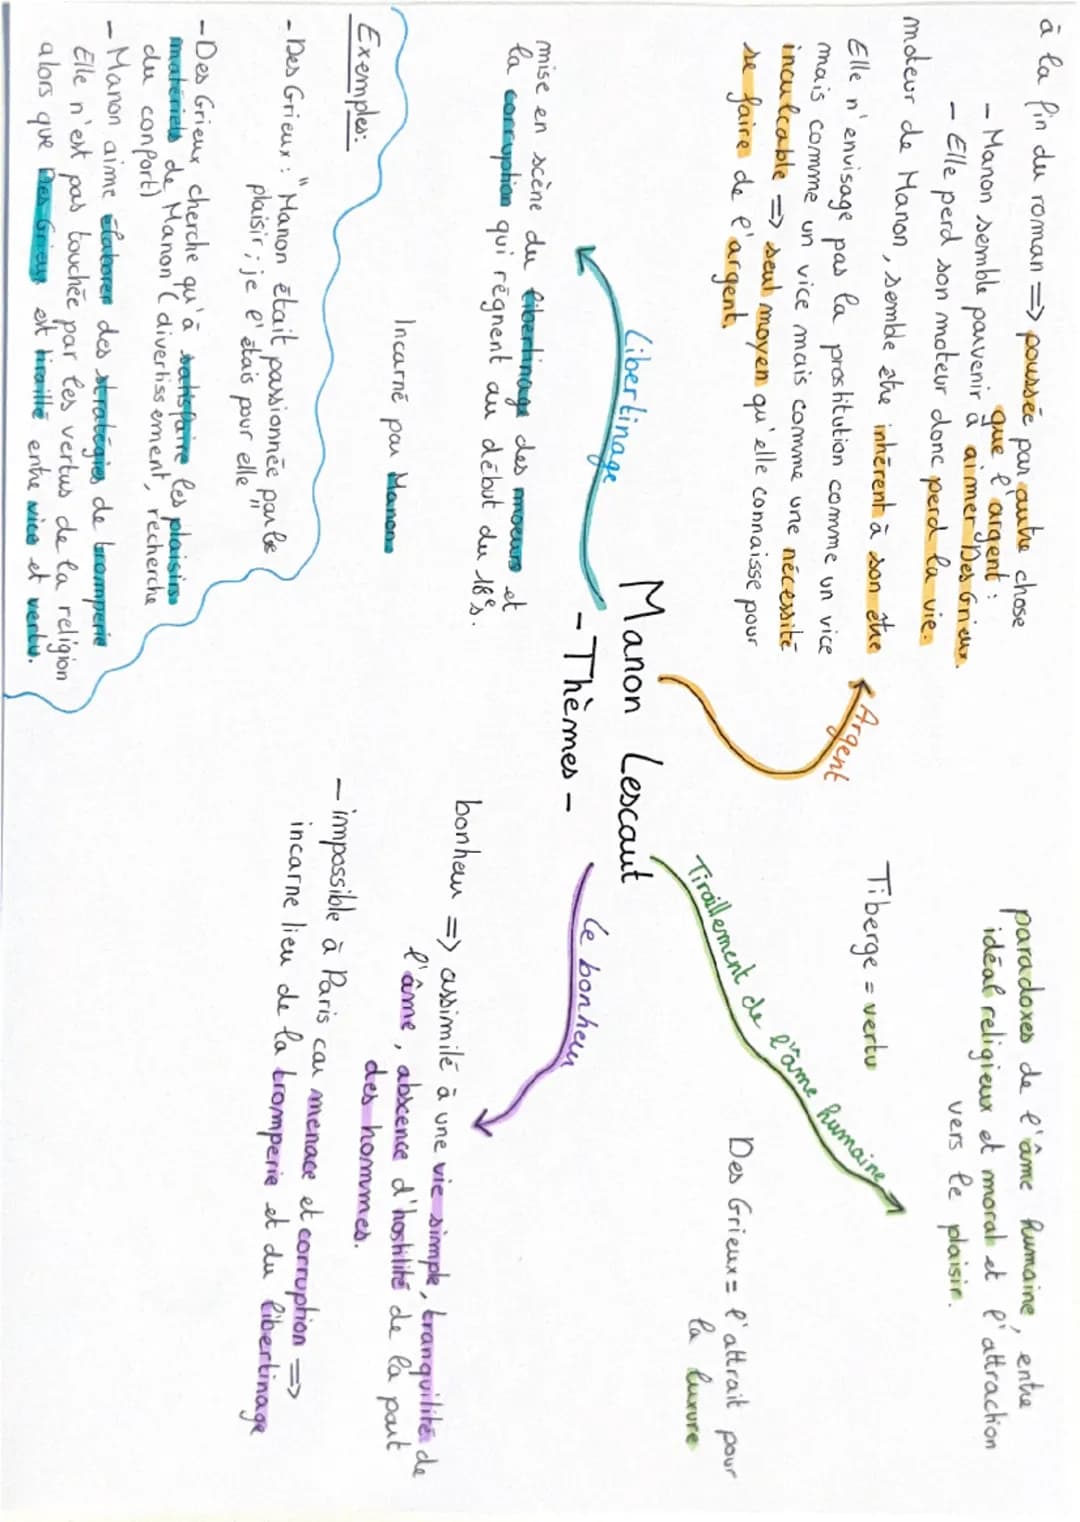 Manon Lescaut
- Thèmes -
Argent
à la fin du roman => poussée par autre chose
que l'argent :
- Manon semble parvenir à aimer Des Grieux.
- Elle perd son moteur donc perd la vie.
moteur de Manon, semble être inhérent à son être
Elle n'envisage pas la prostitution comme un vice
mais comme un vice mais comme une nécessité
inculcable => seul moyen qu'elle connaisse pour
se faire de l'argent.
Libertinage
mise en scène du libertinage des moeurs et
la corruption qui règnent au début du 18e s.
Incarné par Manon
Exemples:
- Des Grieux : "Manon était passionnée par le
plaisir ; je l'étais pour elle"
- Des Grieux cherche qu'à satisfaire les plaisirs
matériels de Manon (divertissement, recherche
du confort)
- Manon aime élaborer des stratégies de tromperie
Elle n'est pas touchée par les vertus de la religion
alors que Des Grieux est tiraillé entre vice et vertu.
Tiraillement de l'âme humaine
paradoxes de l'âme humaine, entre
idéal religieux et moral et l'attraction
vers le plaisir.
Tiberge = vertu
Des Grieux = l'attrait pour
la luxure
Le bonheur
bonheur => assimilé à une vie simple, tranquilité de
l'âme, abscence d'hostilité de la part
des hommes.
- impossible à Paris car menace et corruption =>
incarne lieu de la tromperie et du libertinage